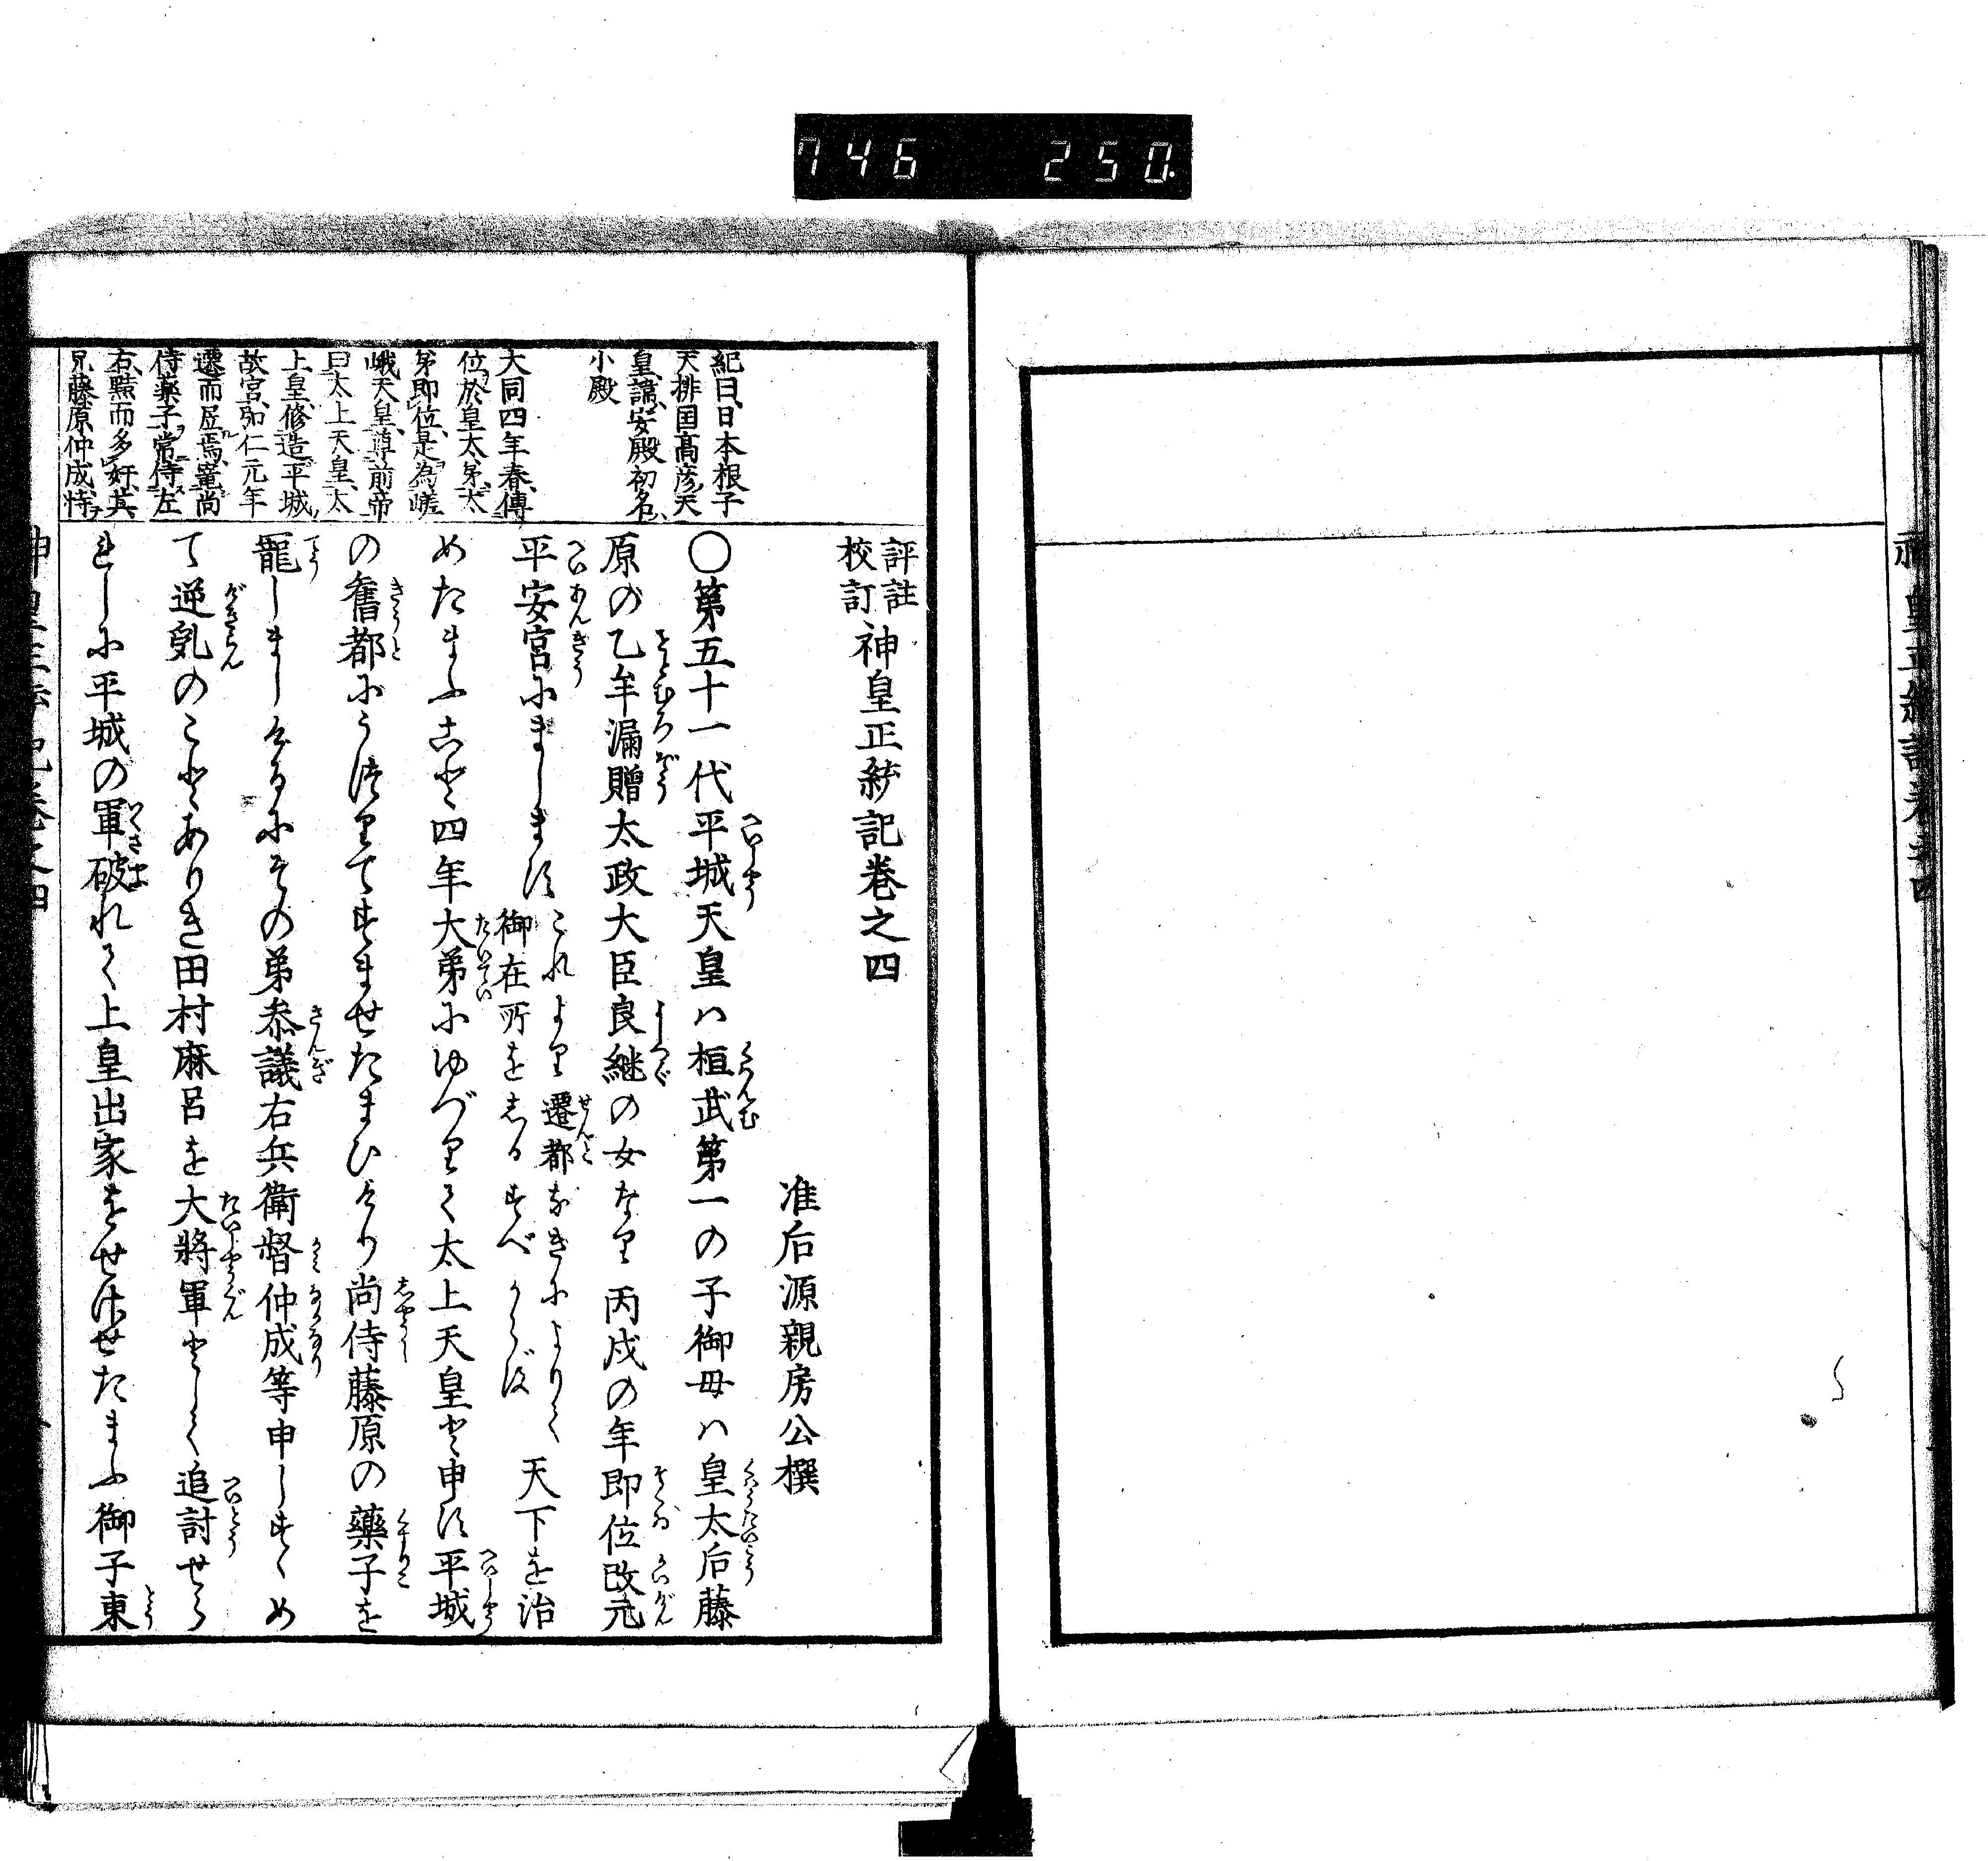 746 250
神皇正統記巻之四
評註
校訂 神皇正統記巻之四
准后源親房公撰
紀曰、日本根子
天排国高彦天
皇、諱安殿初名
小殿
大同四年春、傳
位於皇太弟、太
弟即位、是為嵯
峨天皇、尊前帝
曰太上天皇、太
上皇、修造平城
故宮、弘仁元年
遷而居焉、竈尚
侍薬子常侍左
右、黠而多奸、其
兄藤原仲成、恃
〇第五十一代平城天皇ハ桓武第一の子御母ハ皇太后藤
原の乙牟漏贈太政大臣良継の女なり丙戌の年即位改元
平安宮にまします これより遷都なきによりて
御在所をしるすべからず 天下を治
めたまふこと四年大弟にゆづりて太上天皇と申す平城
の舊都にうつりてすませたまひけり尚侍藤原の藥子を
寵しましけるにその弟参議右兵衛督仲成等申しすゝめ
て逆乱のことありき田村麻呂を大將軍として追討せら
れしに平城の軍破れて上皇出家せさせたまふ御子東